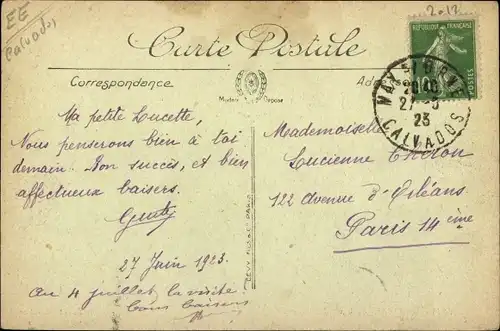 EE
Calvados
2.12
Carte Postale
RÉPUBLIQUE FRANÇAISE
10
POSTES
MAY S/ ORNE
27-6
23
CALVADOS
Correspondance
Modèle Déposé
Ma petite Lucette,
Nous penserons bien à toi
demain. Bon succès, et bien
affectueux baisers.
27 Juin 1923.
Au 4 juillet la visite
bons baisers
LEVY PARIS
Mademoiselle
Lucienne
122 Avenue d'Orléans
Paris 14ème